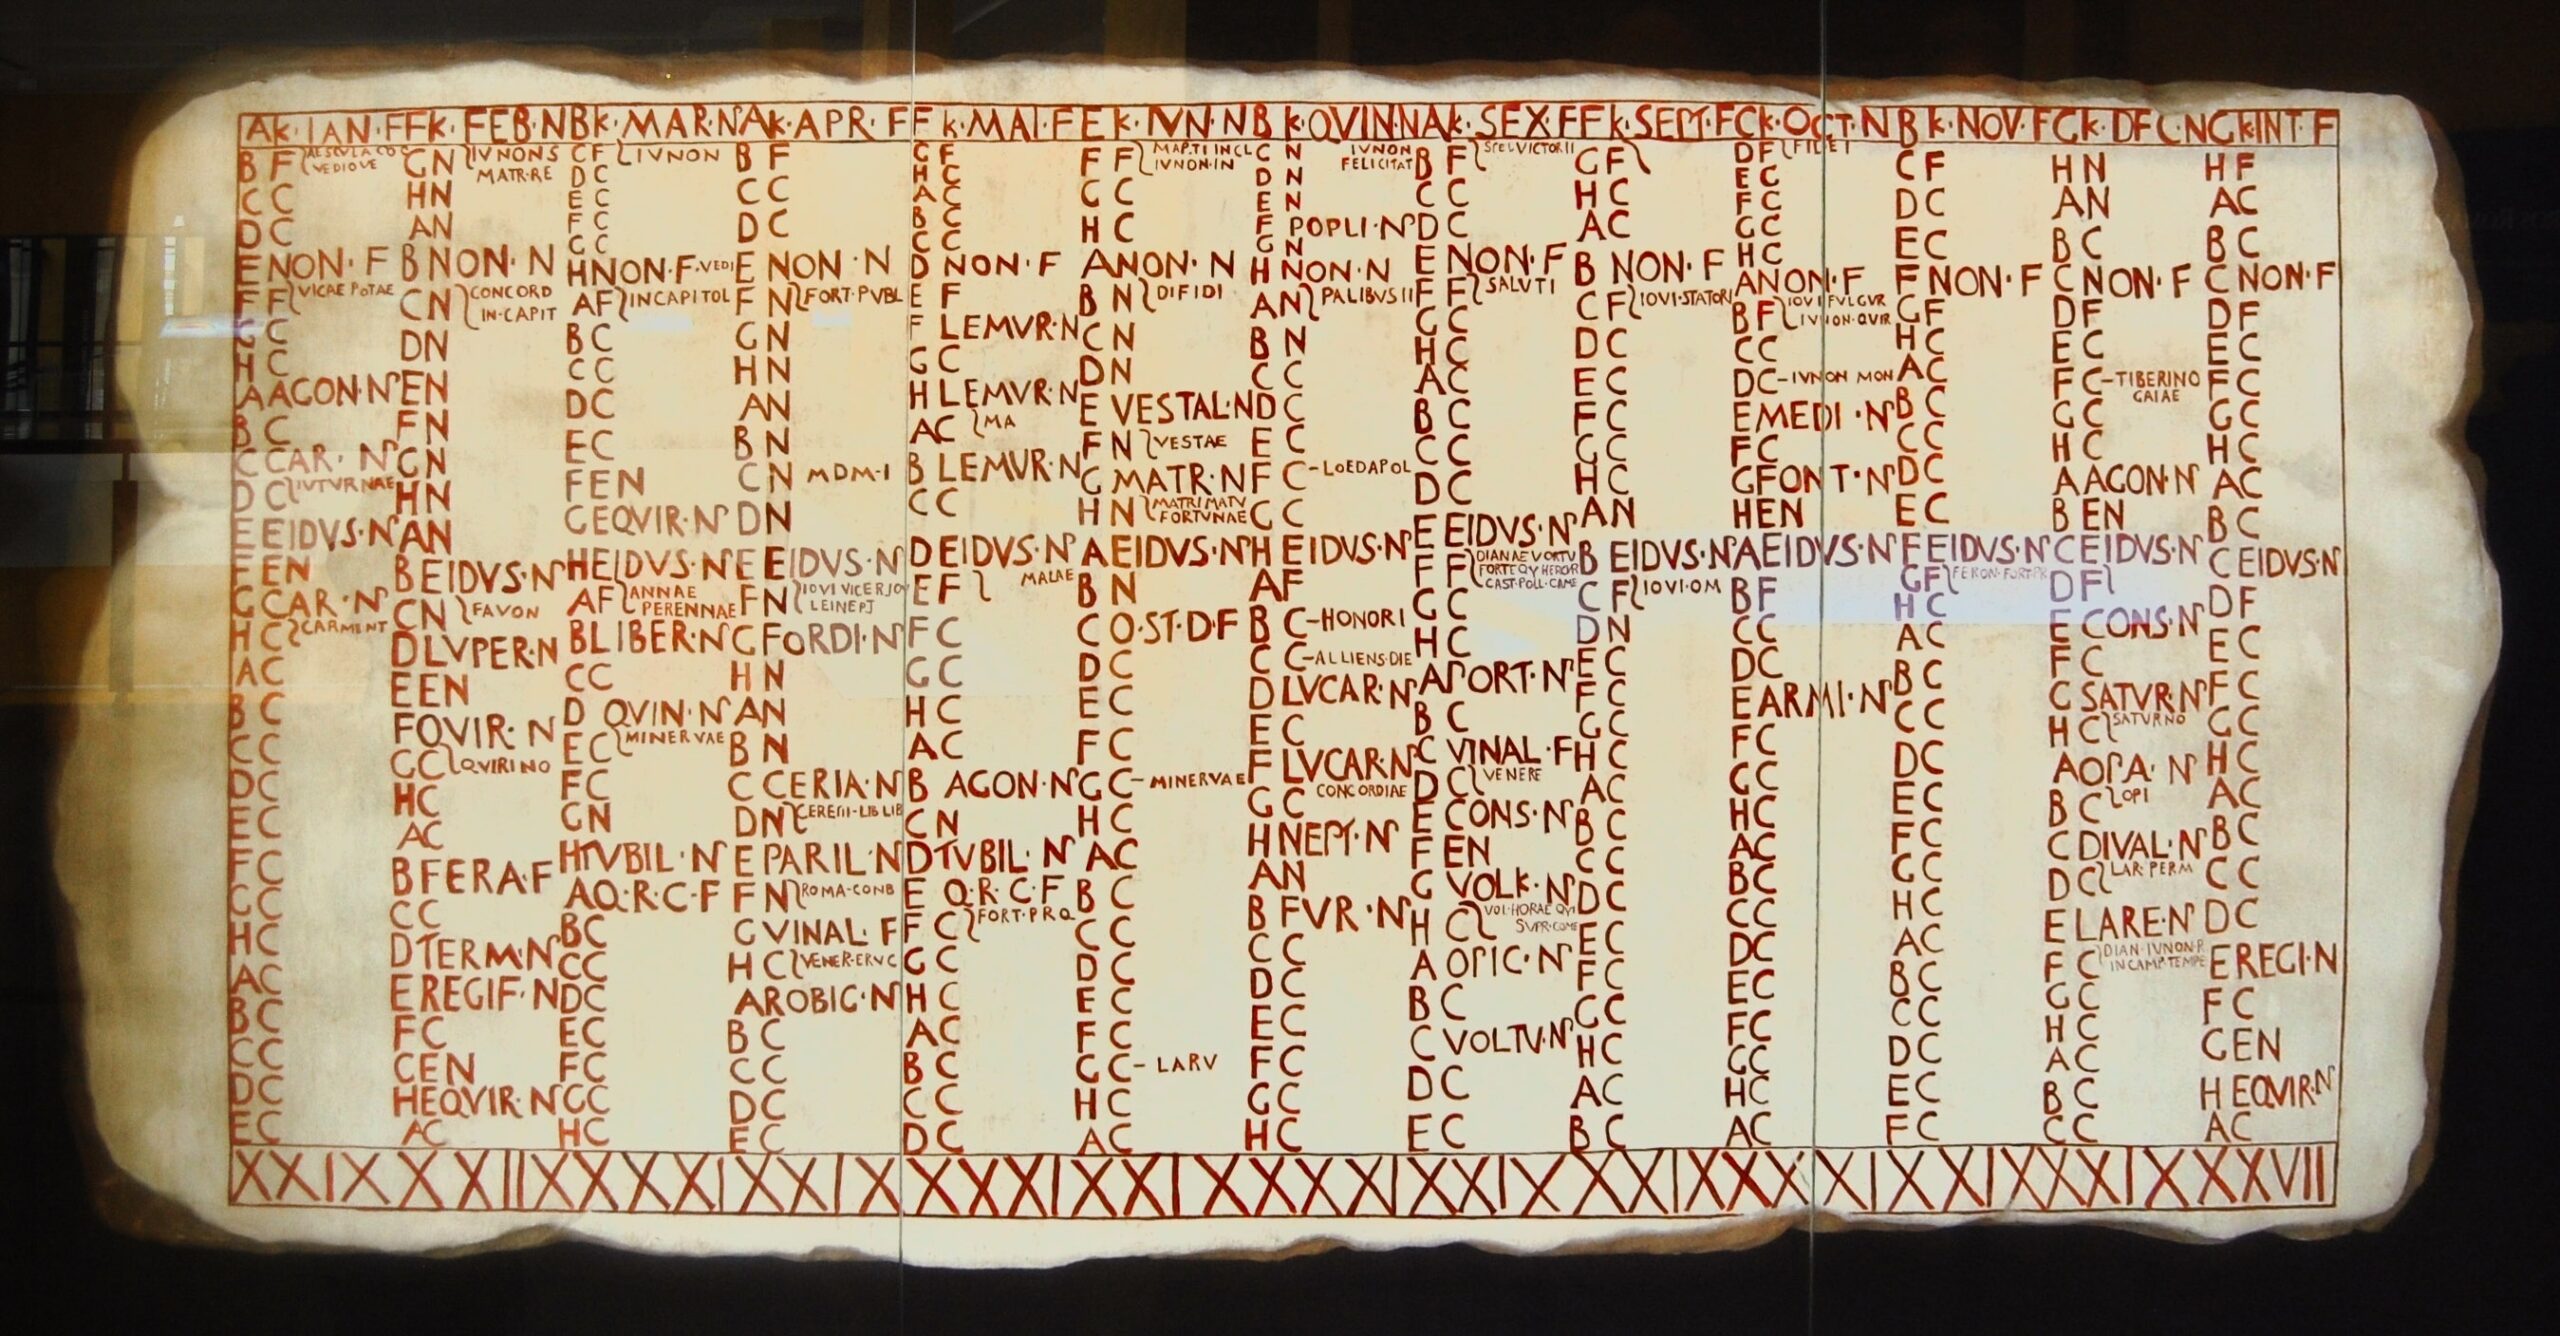 AK·IAN·F FK·FEB·N BK·MAR·N AK·APR·F FK·MAI·F EK·IVN·N BK·QVIN·N AK·SEX·F FK·SEPT·F CK·OCT·N BK·NOV·F GK·DEC·N GK·INT·F
B F
VEDIOVE
C C
D C
E NON·F
F F VICAE POTAE
G C
H C
A AGON·N
B C
C CAR·N
D C IVTVRNAE
E EIDVS·N
F EN
G CAR·N
H C CARMENT
A C
B C
C C
D C
E C
F C
G C
H C
A C
B C
C C
D C
E C
G N IVNONS
MATR·RE
H N
A N
B NON·N
C N CONCORD
IN·CAPIT
D N
E N
F N
G N
H N
A N
B EIDVS·N
C N FAVON
D LVPER·N
E EN
F QVIR·N
G C QVIRINO
H C
A C
B FERA·F
C C
D TERM·N
E REGIF·N
F C
G EN
H EQVIR·N
A C
C F IVNON
D C
E C
F C
G C
H NON·F·VEDI
A F IN CAPITOL
B C
C C
D C
E C
F EN
G EQVIR·N
H EIDVS·N
A F ANNAE
PERENNAE
B LIBER·N
C C
D QVIN·N
E C MINERVAE
F C
G N
H TVBIL·N
A Q·R·C·F
B C
C C
D C
E C
F C
G C
H C
B F
C C
D C
E NON·N
F N FORT·PVBL
G N
H N
A N
B N
C N MDM·I
D N
E EIDVS·N
F N IOVI VICERIOV
LEINEPT
G FORDI·N
H N
A N
B N
C CERIA·N
D N
E PARIL·N
F N ROMA·CONB
G VINAL·F
H C VENER·ERVC
A ROBIG·N
B C
C C
D C
E C
G F
H C
A C
B C
C C
D NON·F
E F
F LEMVR·N
G C
H LEMVR·N
A C MA
B LEMVR·N
C C
D EIDVS·N
E F MALAE
F C
G C
H C
A C
B AGON·N
C N
D TVBIL·N
E Q·R·C·F
F C FORT·PRQ
G C
H C
A C
B C
C C
D C
F F MAP·TI INCL
IVNON·IN
G C
H C
A NON·N
B N DIFIDI
C N
D N
E VESTAL·N
F N VESTAE
G MATR·N
H N MATRI MATV
FORTVNAE
A EIDVS·N
B N
C Q·ST·D·F
D C
E C
F C
G C - MINERVAE
H C
A C
B C
C C
D C
E C
F C
G C - LARV
H C
A C
C N IVNON
FELICITAT
D N
E N
F POPLI·N
G N
H NON·N
A N PALIBVS II
B N
C C
D C
E C
F C - LOEDAPOL
G C
H EIDVS·N
A F
B C - HONORI
C C - ALLIENS·DIE
D LVCAR·N
E C
F LVCAR·N
G C CONCORDIAE
H NEPT·N
A N
B FVR·N
C C
D C
E C
F C
G C
H C
B F SPEI·VICTOR II
C C
D C
E NON·F
F F SALVTI
G C
H C
A C
B C
C C
D C
E EIDVS·N
F F DIANAE VORTV
FORTEQV HERCR
CAST·POLL·CAME
G C
H C
A PORT·N
B C
C VINAL·F
D C VENERE
E CONS·N
F EN
G VOLK·N
H C VOL·HORAE QVI
SVPR·COME
A OPIC·N
B C
C VOLTV·N
D C
E C
G F
H C
A C
B NON·F
C F IOVI·STATORI
D C
E C
F C
G C
H C
A N
B EIDVS·N
C F IOVI·OM
D N
E C
F C
G C
H C
A C
B C
C C
D C
E C
F C
G C
H C
A C
B C
D F FIDEI
E C
F C
G C
H C
A NON·F
B F IOVI FVLGVR
IVNON·QVIR
C C
D C - IVNON MON
E MEDI·N
F C
G FONT·N
H EN
A EIDVS·N
B F
C C
D C
E ARMI·N
F C
G C
H C
A C
B C
C C
D C
E C
F C
G C
H C
A C
C F
D C
E C
F NON·F
G F
H C
A C
B C
C C
D C
E C
F EIDVS·N
G F FERON·FORT·PR
H C
A C
B C
C C
D C
E C
F C
G C
H C
A C
B C
C C
D C
E C
F C
H N
A N
B C
C NON·F
D F
E C
F C - TIBERINO
GAIAE
G C
H C
A AGON·N
B EN
C EIDVS·N
D F
E CONS·N
F C
G SATVR·N
H C SATVRNO
A OPA·N
B C OPI
C DIVAL·N
D C LAR·PERM
E LARE·N
F C DIAN·IVNON·R
IN CAMP·TEMPE
G C
H C
A C
B C
C C
H F
A C
B C
C NON·F
D F
E C
F C
G C
H C
A C
B C
C EIDVS·N
D F
E C
F C
G C
H C
A C
B C
C C
D C
E REGI·N
F C
G EN
H EQVIR·N
A C
XXIX XXVIII XXXI XXIX XXXI XXIX XXXI XXIX XXIX XXXI XXIX XXIX XXVII